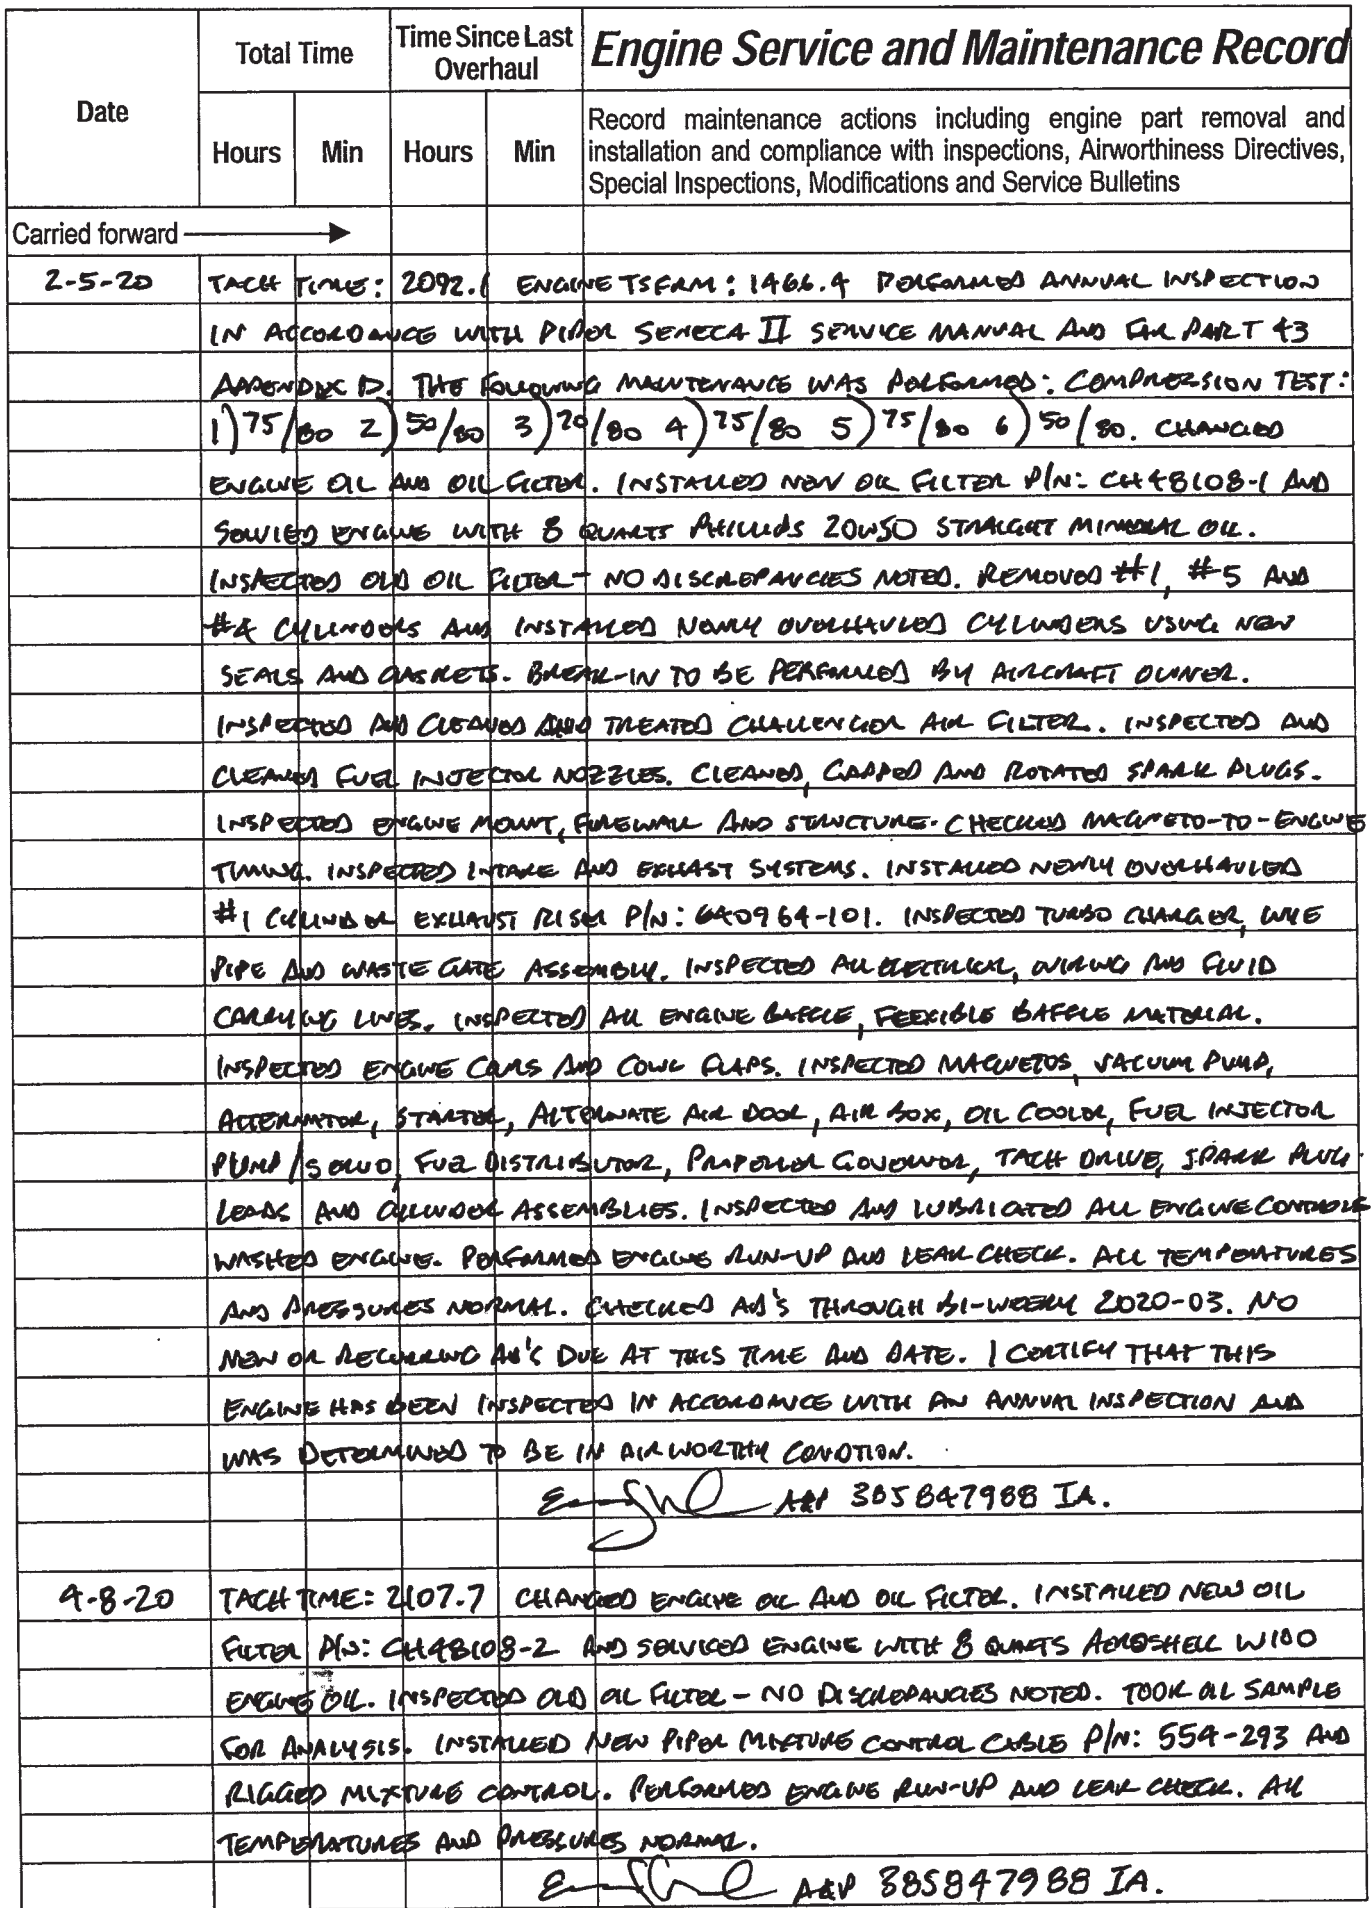 Date
Total Time
Time Since Last Overhaul
Engine Service and Maintenance Record
Hours Min Hours Min
Record maintenance actions including engine part removal and
installation and compliance with inspections, Airworthiness Directives,
Special Inspections, Modifications and Service Bulletins
Carried forward
2-5-20 TACH TIME: 2092.1 ENGINE TSFRM: 1466.4 PERFORMED ANNUAL INSPECTION
IN ACCORDANCE WITH PIPER SENECA II SERVICE MANUAL AND FAR PART 43
APPENDIX D. THE FOLLOWING MAINTENANCE WAS PERFORMED: COMPRESSION TEST:
1) 75/80 2) 50/80 3) 70/80 4) 75/80 5) 75/80 6) 50/80. CHANGED
ENGINE OIL AND OIL FILTER. INSTALLED NEW OIL FILTER P/N: CH48108-1 AND
SERVICED ENGINE WITH 8 QUARTS PHILLIPS 20W50 STRAIGHT MINERAL OIL.
INSPECTED OLD OIL FILTER - NO DISCREPANCIES NOTED. REMOVED #1, #5 AND
CYLINDERS AND INSTALLED NEWLY OVERHAULED CYLINDERS USING NEW
SEALS AND GASKETS. BREAK-IN TO BE PERFORMED BY AIRCRAFT OWNER.
INSPECTED AND CLEANED AND TREATED CHALLENGER AIR FILTER. INSPECTED AND
CLEANED FUEL INJECTOR NOZZLES. CLEANED, GAPPED AND ROTATED SPARK PLUGS.
INSPECTED ENGINE MOUNT, FIREWALL AND STRUCTURE. CHECKED MAGNETO-TO-ENGINE
TIMING. INSPECTED INTAKE AND EXHAST SYSTEMS. INSTALLED NEWLY OVERHAULED
#1 CYLINDER EXHAUST RISER P/N: 640964-101. INSPECTED TURBO CHARGER, WYE
PIPE AND WASTE GATE ASSEMBLY. INSPECTED ALL ELECTRICAL, WIRING AND FLUID
CARRYING LINES. INSPECTED ALL ENGINE BAFFLE, FLEXIBLE BAFFLE MATERIAL.
INSPECTED ENGINE COWLS AND COWL FLAPS. INSPECTED MAGNETOS, VACUUM PUMP,
ALTERNATOR, STARTER, ALTERNATE AIR DOOR, AIR BOX, OIL COOLER, FUEL INJECTOR
PUMP/SERVO, FUEL DISTRIBUTOR, PROPELLER GOVERNOR, TACH DRIVE, SPARK PLUG
LEADS AND CYLINDER ASSEMBLIES. INSPECTED AND LUBRICATED ALL ENGINE CONTROLS
WASHED ENGINE. PERFORMED ENGINE RUN-UP AND LEAK CHECK. ALL TEMPERATURES
AND PRESSURES NORMAL. CHECKED AD'S THROUGH BI-WEEKLY 2020-03. NO
NEW OR RECURRING AD'S DUE AT THIS TIME AND DATE. I CERTIFY THAT THIS
ENGINE HAS BEEN INSPECTED IN ACCORDANCE WITH AN ANNUAL INSPECTION AND
WAS DETERMINED TO BE IN AIRWORTHY CONDITION.
A&P 385847988 IA.
4-8-20 TACH TIME: 2107.7 CHANGED ENGINE OIL AND OIL FILTER. INSTALLED NEW OIL
FILTER P/N: CH48108-2 AND SERVICED ENGINE WITH 8 QUARTS AEROSHELL W100
ENGINE OIL. INSPECTED OLD OIL FILTER - NO DISCREPANCIES NOTED. TOOK OIL SAMPLE
FOR ANALYSIS. INSTALLED NEW PIPER MIXTURE CONTROL CABLE P/N: 554-293 AND
RIGGED MIXTURE CONTROL. PERFORMED ENGINE RUN-UP AND LEAK CHECK. ALL
TEMPERATURES AND PRESSURES NORMAL.
A&P 385847988 IA.